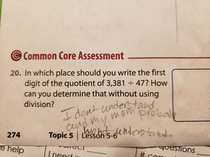 Common Core Assessment
20. In which place should you write the first
digit of the quotient of 3,381 ÷ 47? How
can you determine that without using
division?
I dont understand
and my mom probably
won't understand.
274 Topic 5 | Lesson 5-6
o help
I need
questions